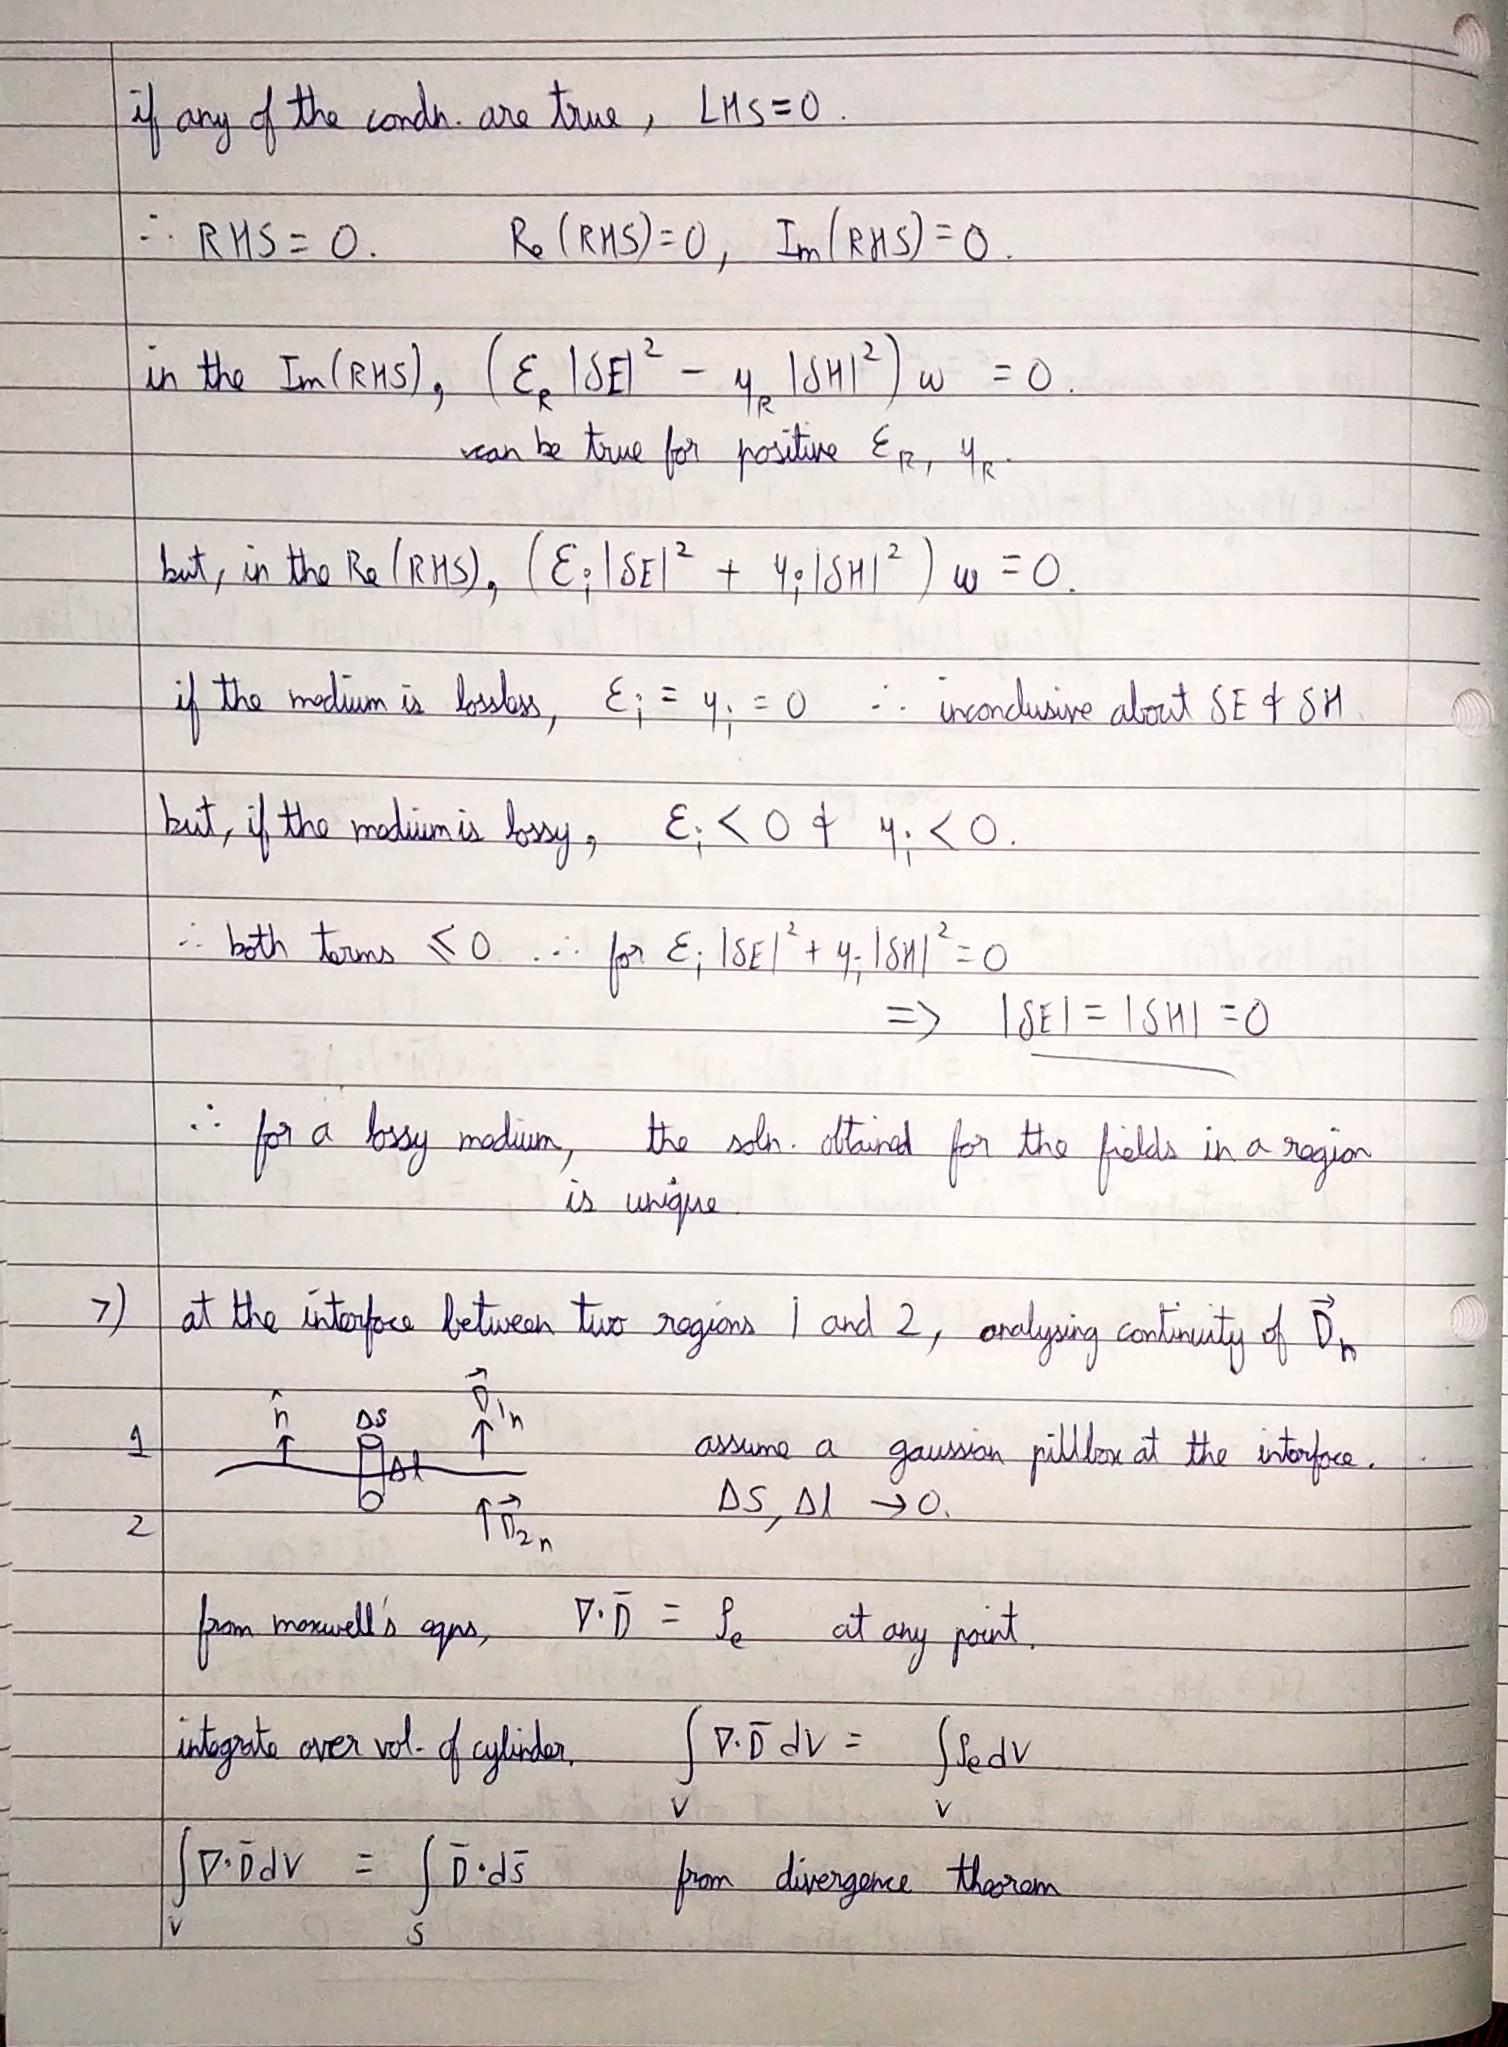 if any of the condn. are true, LHS=0.
∴ RHS = 0. Re (RHS)=0, Im(RHS)=0.
in the Im(RHS), (ε_R |δE|² - μ_R |δH|²) ω = 0.
can be true for positive ε_R, μ_R.
but, in the Re(RHS), (ε_i|δE|² + μ_i|δH|²) ω = 0.
if the medium is lossless, ε_i = μ_i = 0 ∴ inconclusive about δE & δH.
but, if the medium is lossy, ε_i < 0 & μ_i < 0.
∴ both terms ≤ 0. ∴ for ε_i |δE|² + μ_i |δH|² = 0
=> |δE| = |δH| = 0
∴ for a lossy medium, the soln. obtained for the fields in a region
is unique.
7) at the interface between two regions 1 and 2, analysing continuity of D⃗_n
n̂ ΔS D⃗_1n
1 Δl assume a gaussian pillbox at the interface.
2 D⃗_2n ΔS, Δl → 0.
from maxwell's eqns, ∇·D̄ = ρ_e at any point.
integrate over vol. of cylinder, ∫_V ∇·D̄ dV = ∫_V ρ_e dV
∫_V ∇·D̄ dV = ∫_S D̄·ds̄ from divergence theorem